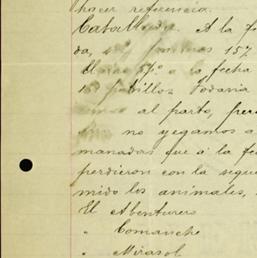 hacer referencia.
Caballada. A la fo
da, 157
la fecha
potrillos Todavia
al parto, per
no yegamos a
manadas que á la fe
perdieron con la sequ
mido los animales,
El Abenturero
" Comanche
" Mirasol